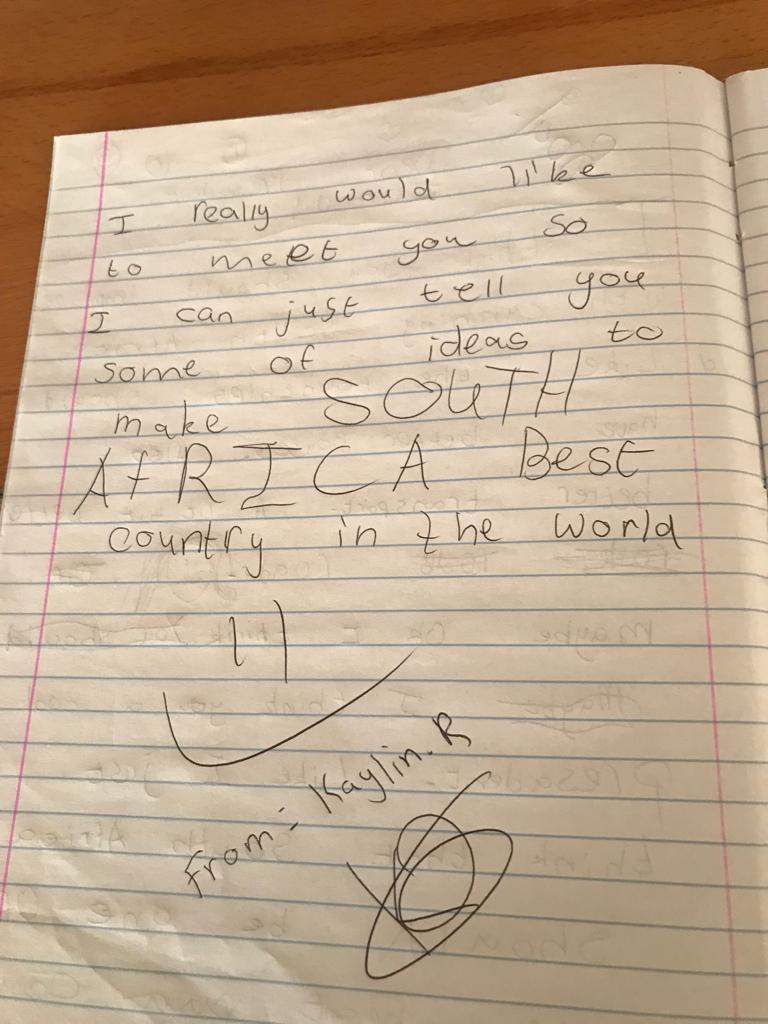 I really would like
to meet you so
I can just tell you
some of ideas to
make SOUTH
AfRICA Best
country in the world
From: Kaylin.R